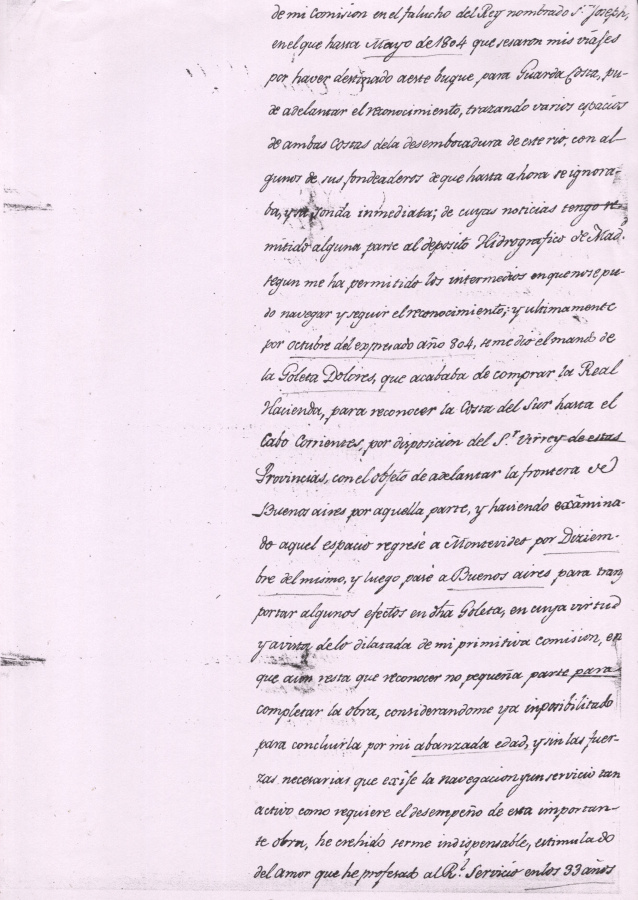 de mi Comision en el falucho del Rey nombrado Sn. Joseph,
en el que hasta Mayo de 1804 que sesaron mis viajes
por haver destinado aeste buque para Guarda Costa, pu-
de adelantar el reconocimiento, trazando varios espacios
de ambas Costas dela desembocadura de este rio, con al-
gunos de sus fondeaderos de que hasta ahora se ignora-
ba, y su sonda inmediata; de cuyas noticias tengo re-
mitido alguna parte al deposito Hidrografico de Madd.
segun me ha permitido los intermedios en que nose pu-
do navegar y seguir el reconocimiento; y ultimamente
por octubre del expresado año 804, se me dio el mando de
la Goleta Dolores, que acababa de comprar la Real
Hacienda, para reconocer la Costa del Sur hasta el
Cabo Corrientes, por disposicion del Sr. Virrey de estas
Provincias, con el objeto de adelantar la frontera de
Buenos aires por aquella parte, y haviendo exâmina-
do aquel espacio regresé a Montevideo por Diziem-
bre del mismo, y luego pasé a Buenos aires para tran
portar algunos efectos en dha Goleta, en cuya virtud
y avista delo dilatada de mi primitiva comision, en
que aun resta que reconocer no pequeña parte para
completar la obra, considerandome ya imposibilitado
para concluirla por mi abanzada edad, y sin las fuer-
zas necesarias que exije la navegacion yun servicio tan
activo como requiere el desempeño de esta importan-
te obra, he crehido serme indispensable, estimulado
del amor que he profesado al Rl. Servicio en los 33 años